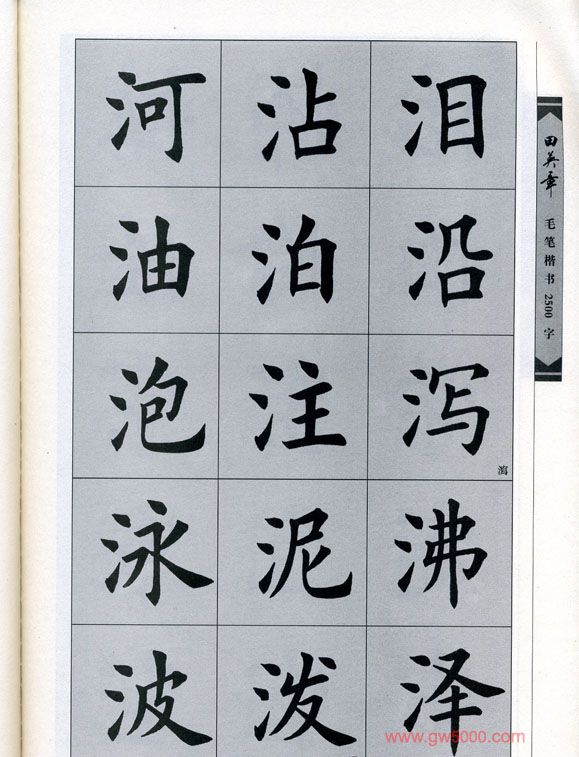 河沾泪
油泊沿
泡注泻
瀉
泳泥沸
波泼泽
田英章
毛笔楷书2500字
www.gw5000.com